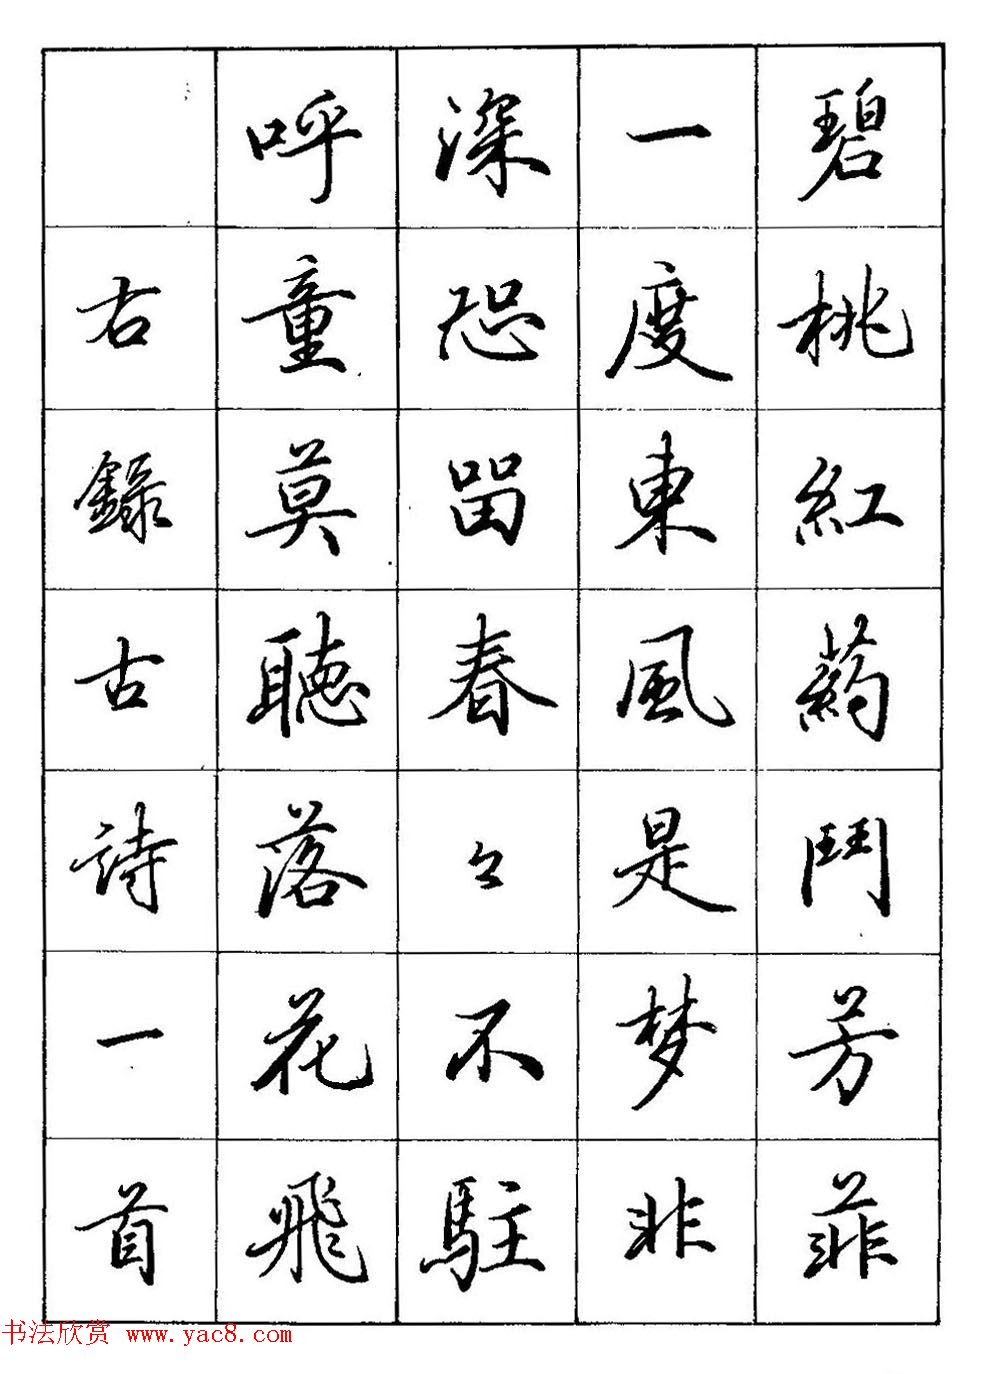 碧桃紅葯鬥芳菲
一度東風是梦非
深恐留春々不駐
呼童莫聽落花飛
右錄古詩一首
书法欣赏 www.yac8.com